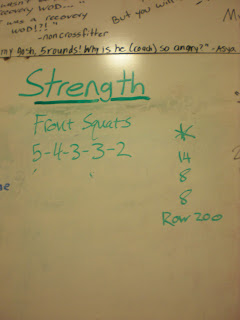 recovery WOD..."
was a recovery
WOD!?!"
-noncrossfitter
But you will
my gosh, 5 rounds! Why is he (coach) so angry?" -Asya
Strength
Front Squats
5-4-3-3-2
*
14
8
8
Row 200